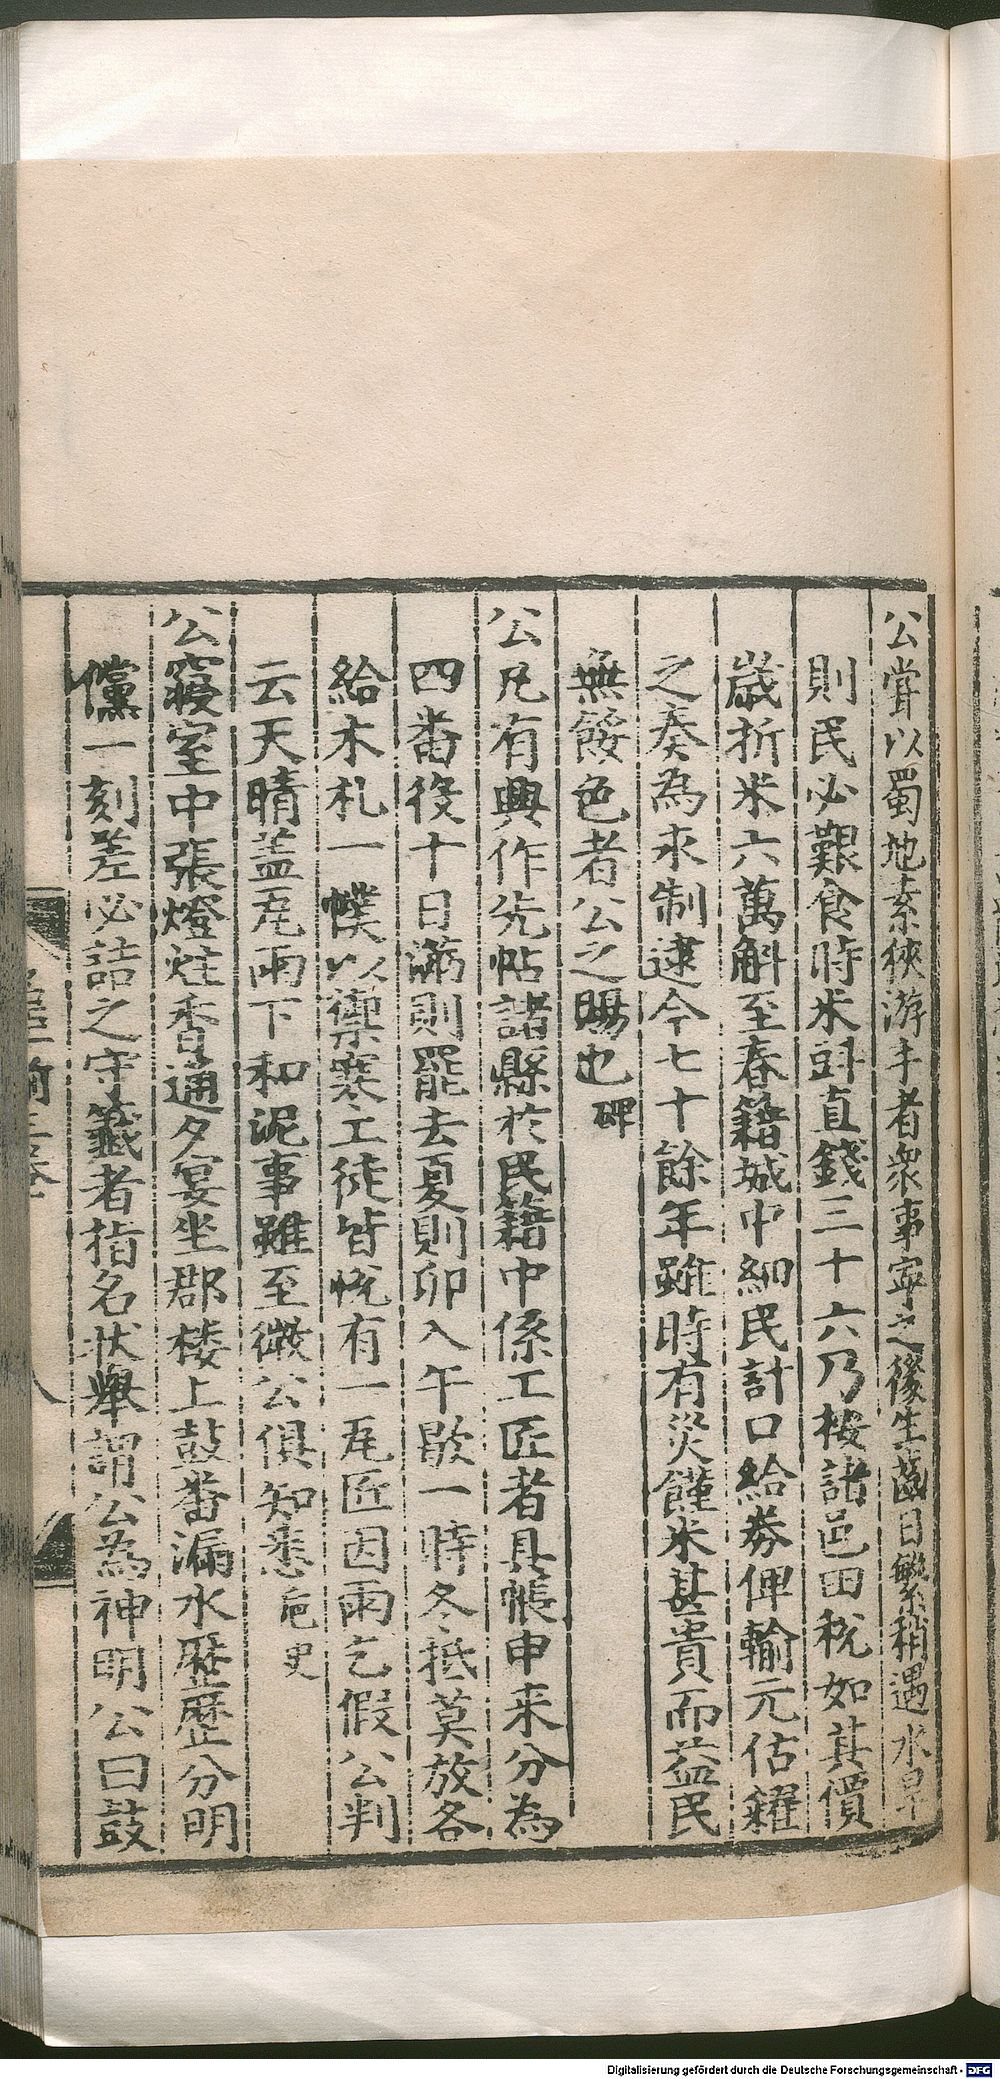 公嘗以蜀地素狹游手者衆事寧之後生齒日繁稍遇水旱
則民必艱食時米㪷直錢三十六乃按諸邑田稅如其價
歲折米六萬斛至春籍城中細民計口給券俾輸元估糴
之奏為永制逮今七十餘年雖時有災饉米甚貴而益民
無餒色者公之賜也 碑
公凡有興作先帖諸縣於民籍中係工匠者具帳申来分為
四番役十日滿則罷去夏則卯入午歇一時冬抵莫放各
給木札一幞以禦寒工徒皆恱有一瓦匠因雨乞假公判
云天晴盖瓦雨下和泥事雖至微公俱知悉 卮史
公寢室中張燈炷香通夕宴坐郡楼上鼓番漏水歷歷分明
儻一刻差必詰之守籤者指名狀舉謂公為神明公曰鼓
Digitalisierung gefördert durch die Deutsche Forschungsgemeinschaft - DFG